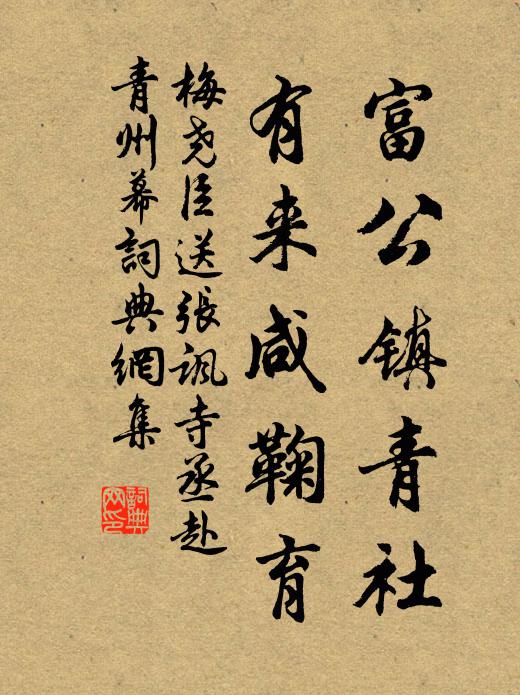 富公镇青社
有来咸鞠育
梅尧臣送張諷寺丞赴
青州幕詞典網集
詞典网印